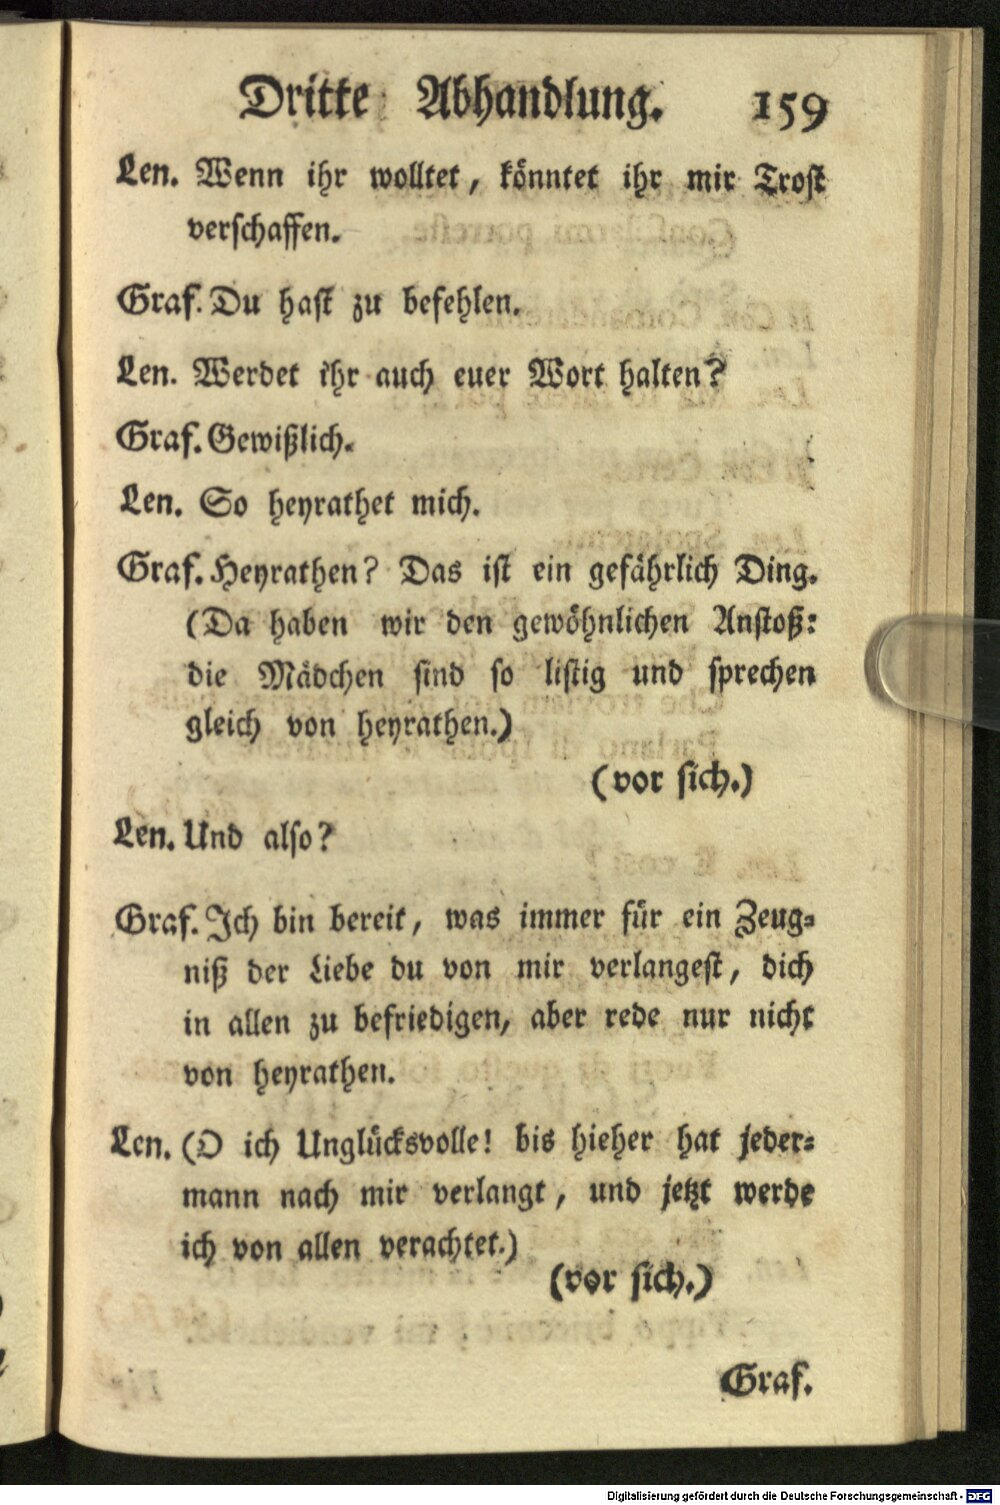 Dritte Abhandlung. 159
Len. Wenn ihr wolltet, könntet ihr mir Trost
verschaffen.
Graf. Du hast zu befehlen.
Len. Werdet ihr auch euer Wort halten?
Graf. Gewißlich.
Len. So heyrathet mich.
Graf. Heyrathen? Das ist ein gefährlich Ding.
(Da haben wir den gewöhnlichen Anstoß:
die Mädchen sind so listig und sprechen
gleich von heyrathen.)
(vor sich.)
Len. Und also?
Graf. Ich bin bereit, was immer für ein Zeug-
niß der Liebe du von mir verlangest, dich
in allen zu befriedigen, aber rede nur nicht
von heyrathen.
Len. (O ich Unglücksvolle! bis hieher hat jeder-
mann nach mir verlangt, und jetzt werde
ich von allen verachtet.)
(vor sich.)
Graf.
Digitalisierung gefördert durch die Deutsche Forschungsgemeinschaft - DFG